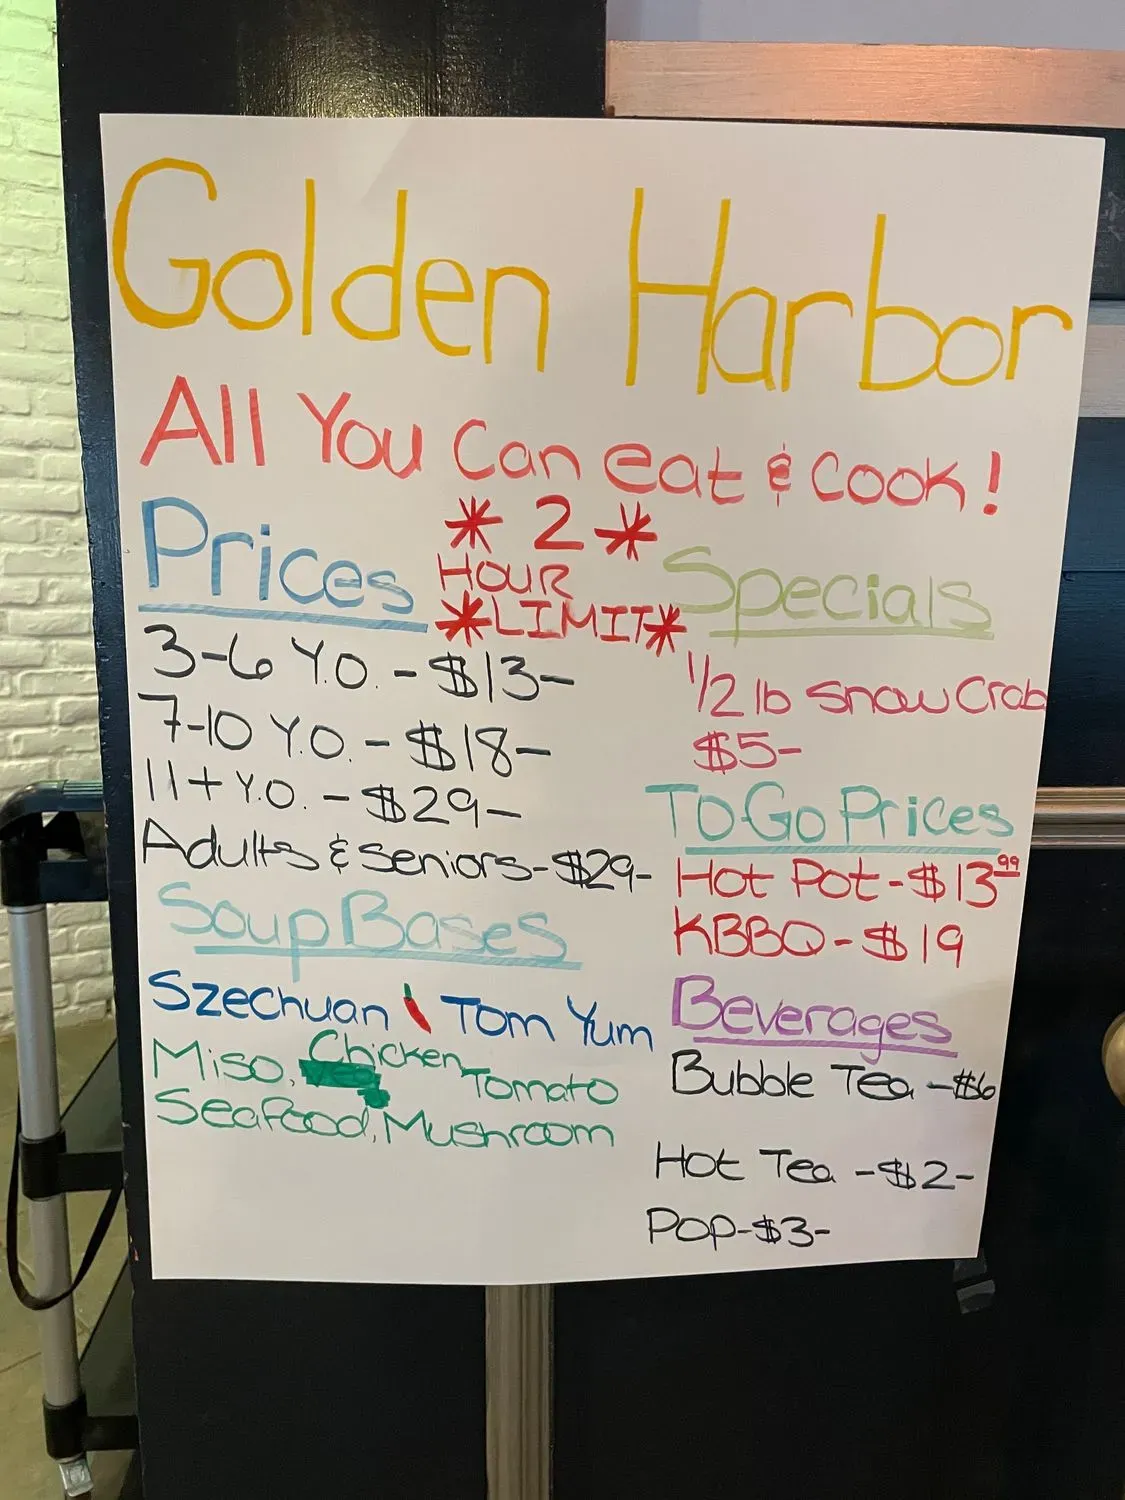 Golden Harbor
All You Can eat & cook!
* 2 *
HOUR
*LIMIT*
Prices
3-6 Y.O. - $13-
7-10 Y.O. - $18-
11+ Y.O. - $29-
Adults & seniors - $29-
Soup Bases
Szechuan Tom Yum
Miso, Chicken, Tomato
Seafood, Mushroom
Specials
1/2 lb snow Crab
$5-
To-Go Prices
Hot Pot - $13.99
KBBQ - $19
Beverages
Bubble Tea - $6
Hot Tea - $2-
Pop - $3-